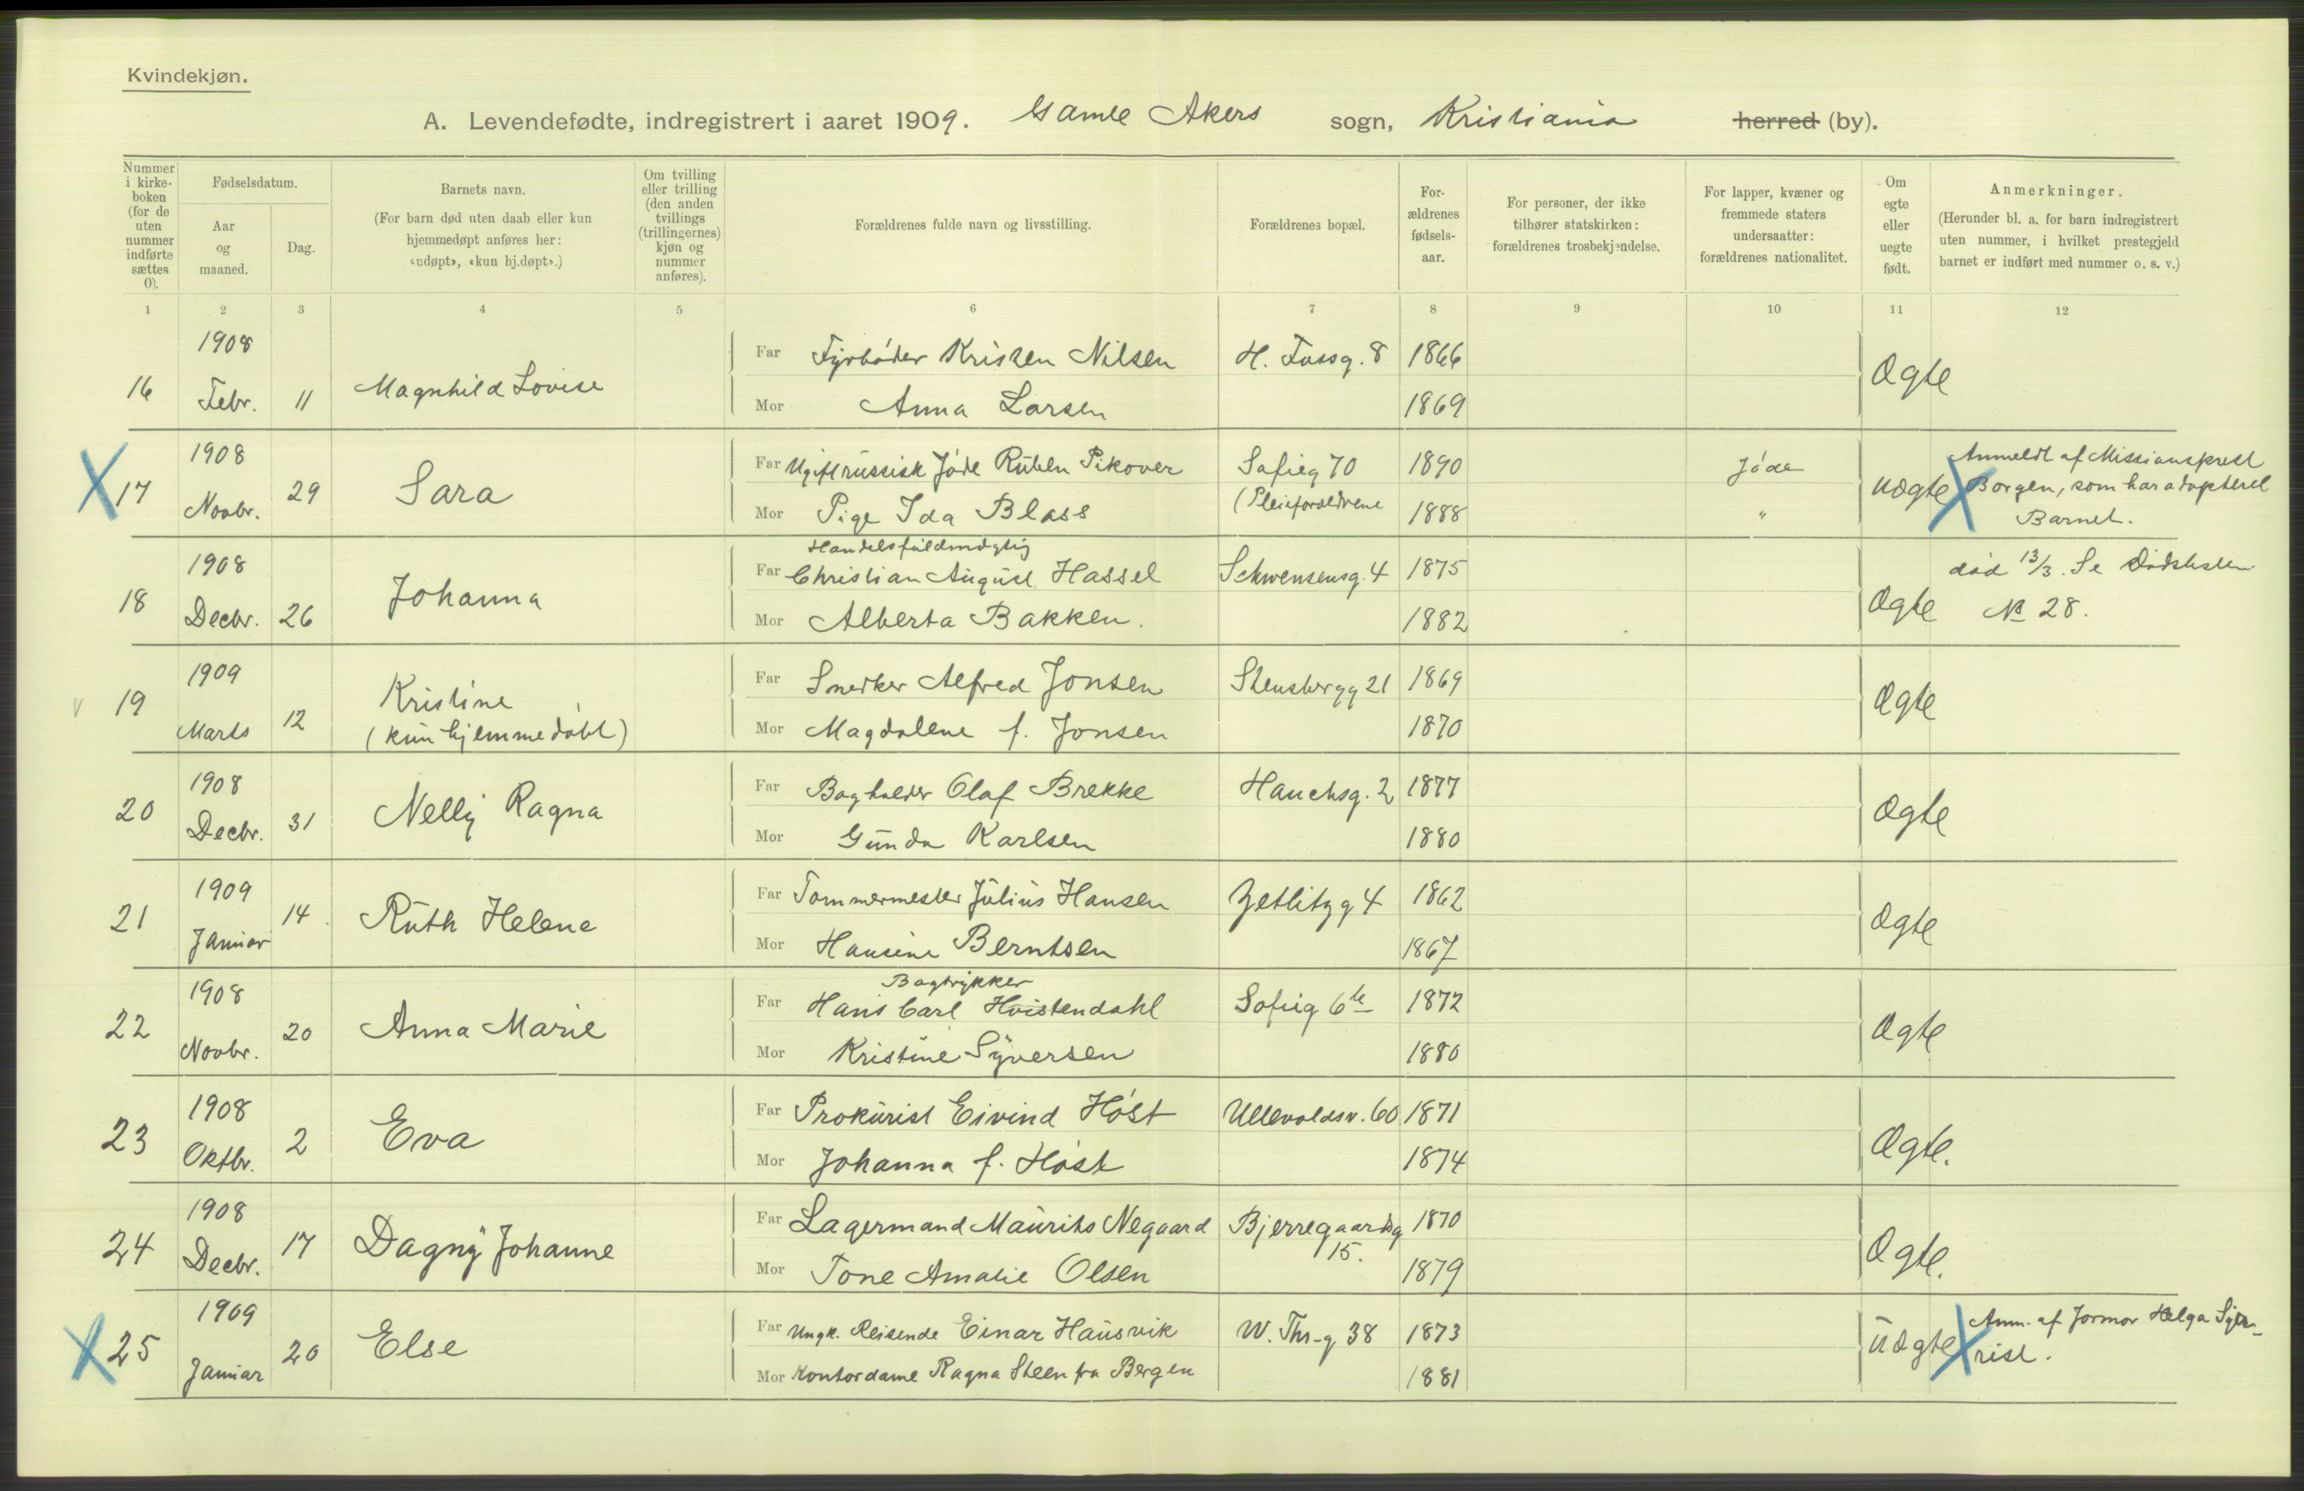 Kvindekjøn.
A. Levendefødte, indregistrert i aaret 1909. Gamle Akers sogn, Kristiania herred (by).
Nummer i kirke-boken (for de uten nummer indførte sættes 0).
Fødselsdatum.
Aar og maaned.
Dag.
Barnets navn.
(For barn død uten daab eller kun hjemmedøpt anføres her: «udøpt», «kun hj.døpt».)
Om tvilling eller trilling (den anden tvillings (trillingernes) kjøn og nummer anføres).
Forældrenes fulde navn og livsstilling.
Forældrenes bopæl.
For-ældrenes fødsels-aar.
For personer, der ikke tilhører statskirken: forældrenes trosbekjendelse.
For lapper, kvæner og fremmede staters undersaatter: forældrenes nationalitet.
Om egte eller uegte født.
Anmerkninger.
(Herunder bl. a. for barn indregistrert uten nummer, i hvilket prestegjeld barnet er indført med nummer o. s. v.)
1 2 3 4 5 6 7 8 9 10 11 12
1908
Far Fyrbøder Kristen Nilsen H. Tossg. 8 1866
16 Febr. 11 Magnhild Lovise Ægte
Mor Anna Larsen 1869
1908
Far Ugift russisk Jøde Ruben Pikover Sofieg 70 1890 Jøde Anmeldt af Missionsprest
X 17 Novbr. 29 Sara Uægte X Borgen, som har adopteret
Mor Pige Ida Blass (Pleieforældrene 1888 " Barnet.
1908 Handelsfuldmægtig
Far Christian August Hassel Schwensensg. 4 1875 død 13/3. Se Dødslisten
18 Decbr. 26 Johanna Ægte № 28.
Mor Alberta Bakken. 1882
1909
Far Snedker Alfred Jonsen Stensbergg 21 1869
v 19 Marts 12 Kristine Ægte
(kun hjemmedøbt)
Mor Magdalene f. Jonsen 1870
1908
Far Bogholder Olaf Brekke Hauchsg. 2 1877
20 Decbr. 31 Nelly Ragna Ægte
Mor Gunda Karlsen 1880
1909
Far Tømmermester Julius Hansen Zetlitzg 4 1862
21 Januar 14. Ruth Helene Ægte
Mor Hansine Berntsen 1867
1908 Bogtrykker
Far Hans Carl Hvistendahl Sofieg 1872
22 Novbr. 20 Anna Marie Ægte
Mor Kristine Syversen 1880
1908
Far Prokurist Eivind Høst Ullevoldsv. 60 1871
23 Oktbr. 2 Eva Ægte.
Mor Johanna f. Høst 1874
1908
Far Lagermand Maurits Negaard Bjerregaardsg 1870
24 Decbr. 17 Dagny Johanne 15. Ægte.
Mor Tone Amalie Olsen 1879
1909
Far Ungk. Reisende Einar Hausvik W. Thr-g 38 1873 Anm. af Jormor Helga
X 25 Januar 20 Else Uægte X
Mor Kontordame Ragna Steen fra Bergen 1881